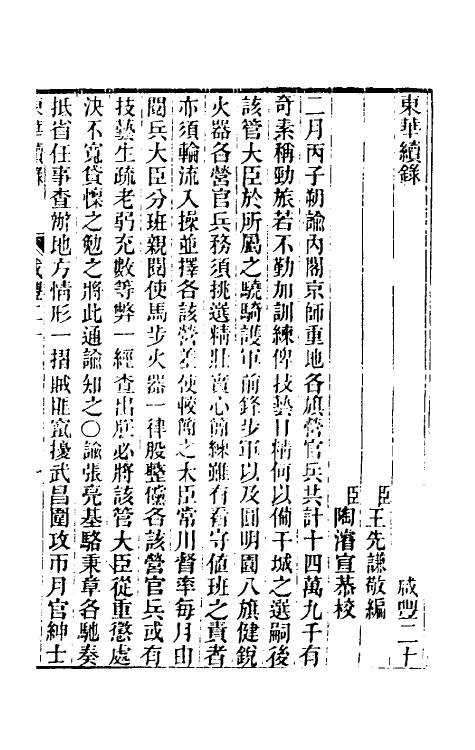 東華續錄 咸豐二十
臣王先謙敬編
臣陶濬宣恭校
二月丙子朔諭內閣京師重地各旗營官兵共計十四萬九千有
奇素稱勁旅若不勤加訓練俾技藝日精何以備干城之選嗣後
該管大臣於所屬之驍騎護軍前鋒步軍以及圓明園八旗健銳
火器各營官兵務須挑選精壯實心簡練雖有看守值班之責者
亦須輪流入操並擇各該營差使較簡之大臣常川督率每月由
閱兵大臣分班親閱使馬步火器一律殷整儻各該營官兵或有
技藝生疏老弱充數等弊一經查出朕必將該管大臣從重懲處
決不寬貸懍之勉之將此通諭知之○諭張亮基駱秉章各馳奏
抵省任事查辦地方情形一摺賊匪竄擾武昌圍攻帀月官紳士
東華續錄 咸豐二十 一